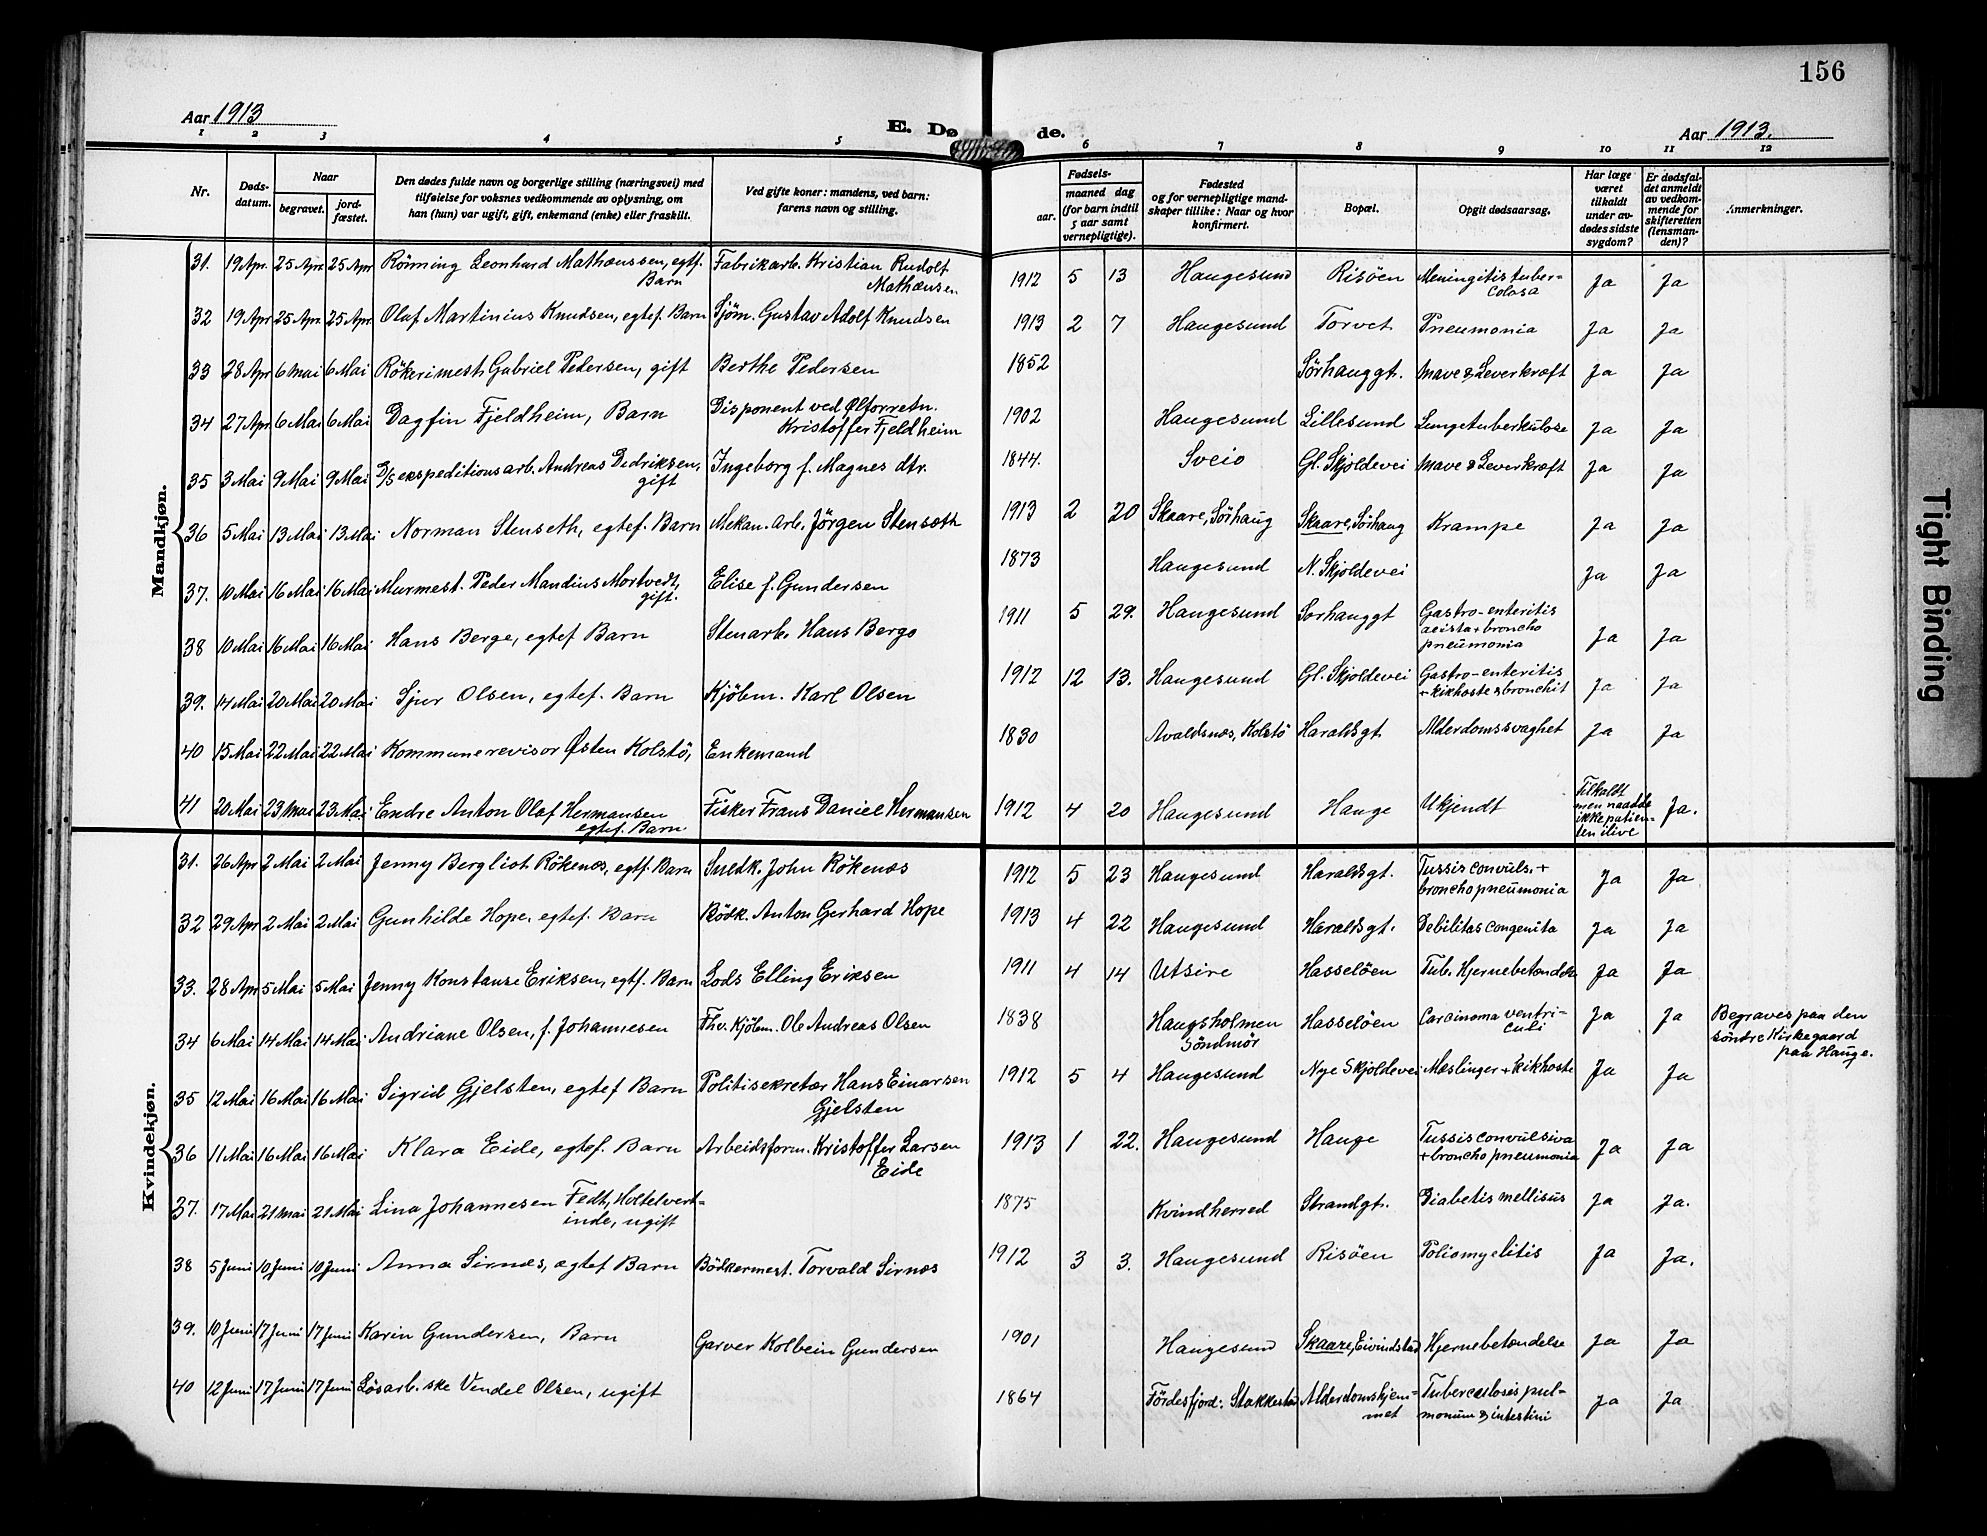 156
Aar 1913
E. Dø de.
Aar 1913.
1 2 3 4 5 6 7 8 9 10 11 12
Nr.
Døds-
datum.
Naar
begravet.
jord-
fæstet.
Den dødes fulde navn og borgerlige stilling (næringsvei) med
tilføielse for voksnes vedkommende av oplysning, om
han (hun) var ugift, gift, enkemand (enke) eller fraskilt.
Ved gifte koner: mandens, ved barn:
farens navn og stilling.
Fødsels-
aar.
maaned dag
(for barn indtil
5 aar samt
vernepligtige).
Fødested
og for vernepligtige mand-
skaper tillike: Naar og hvor
konfirmert.
Bopæl.
Opgit dødsaarsag.
Har læge
været
tilkaldt
under av-
dødes sidste
sygdom?
Er dødsfal-
det anmeldt
av vedkom-
mende for
skifteretten
(lensman-
den)?
Anmerkninger.
Mandkjøn.
31. 19 Apr. 25 Apr. 25 Apr Rönning Leonhard Mathæussen, egtf. Barn Fabrikarb. Kristian Rudolf Mathæusen 1912 5 13 Haugesund Risöen Meningitis tuber-colosa Ja Ja
32 19 Apr 25 Apr. 25 Apr. Olaf Martinius Knudsen, egtef. Barn Sjöm. Gustav Adolf Knudsen 1913 2 7 Haugesund Torvet Pneumonia Ja Ja
33 28 Apr 6 Mai 6 Mai Rökerimestr Gabriel Pedersen, gift Berthe Pedersen 1852 Sörhauggt. Mave & Leverkræft Ja Ja
34 27 Apr 6 Mai 6 Mai Dagfin Fjeldheim, Barn Disponent ved Ølforretn. Kristoffer Fjeldheim 1902 Haugesund Lillesund Lungetuberkulose Ja Ja
35 3 Mai 9 Mai 9 Mai D/S ekspeditionsarb. Andreas Didriksen, gift Ingeborg f. Magnes dtr. 1844. Sveio Gl. Skjoldevei Mave & Leverkræft Ja Ja
36 5 Mai 13 Mai 13 Mai Norman Stenseth, egtef. Barn Mekan. Arb. Jörgen Stenseth 1913 2 20 Skaare, Sörhaug Skaare, Sörhaug Krampe Ja Ja
37. 10 Mai 16 Mai 16 Mai Murmest. Peder Mandius Mortvedt, gift. Elise f. Gundersen 1873 Haugesund N. Skjoldevei Ja Ja
38 10 Mai 16 Mai 16 Mai Hans Berge, egtef Barn Stenarb. Hans Berge 1911 5 29. Haugesund Sorhauggt Gastro-enteritis + broncho pneumonia Ja Ja
39. 14 Mai 20 Mai 20 Mai Sjur Olsen, egtef. Barn Kjöbm. Karl Olsen 1912 12 13. Haugesund Gl. Skjoldevei Gastro-enteritis + kikhoste & bronchit Ja Ja
40 15 Mai 22 Mai 22 Mai Kommunerevisor Østen Kolstö, Enkemand 1830 Avaldsnæs, Kolstö Haraldsgt Alderdomssvaghet Ja Ja
41 20 Mai 23 Mai 23 Mai Endre Anton Olaf Hermansen egtef. Barn Fisker Frans Daniel Hermansen 1912 4 20 Haugesund Hauge Ukjendt Tilkaldt men naadde ikke patien-ten ilive Ja.
Kvindekjøn.
31. 26 Apr 2 Mai 2 Mai Jenny Bergliot Rökenæs, egtf. Barn Snedk. John Rökenæs 1912 5 23 Haugesund Haraldsgt. Tussis convuls. + bronchopneumonia Ja Ja
32 29 Apr 2 Mai 2 Mai Gunhilde Hope, egtef. Barn Bödk. Anton Gerhard Hope 1913 4 22 Haugesund Haraldsgt. Debilitas congenita Ja Ja
33. 28 Apr 5 Mai 5 Mai Jenny Konstanse Eriksen, egtf. Barn Lods Elling Eriksen 1911 4 14 Utsire Hasselöen Tub. Hjernebetændelse Ja Ja
34 6 Mai 14 Mai 14 Mai Andriane Olsen, f. Johannesen Fhv. Kjöbm. Ole Andreas Olsen 1838 Haugsholmen Söndmör Hasselöen Carcinoma ventri-culi Ja Ja Begraves paa den söndre Kirkegaard paa Hauge.
35 12 Mai 16 Mai 16 Mai Sigrid Gjelsten, egtef Barn Politisekretær Hans Einarsen Gjelsten 1912 5 4 Haugesund Nye Skjoldevei Mæslinger + kikhoste Ja Ja
36 11 Mai 16 Mai 16 Mai Klara Eide, egtef. Barn Arbeidsform. Kristoffer Larsen Eide 1913 1 22. Haugesund Hauge Tussis convulsiva + broncho pneumonia Ja Ja
37. 17 Mai 21 Mai 21 Mai Lina Johannesen Fedt, Hotelvert-inde, ugift 1875 Kvindherred Strandgt. Diabetis mellisus Ja Ja.
38 5 Juni 10 Juni 10 Juni Anna Sirnæs, ægtef Barn Bödkermest. Torvald Sirnæs 1912 3 3. Haugesund Risöen Poliomyelitis Ja Ja.
39. 10 Juni 17 Juni 17 Juni Karin Gundersen, Barn Garver Kolbein Gundersen 1901 Haugesund Skaare, Eivindstad Hjernebetændelse Ja Ja
40 12 Juni 17 Juni 17 Juni Løsarb.ske Vendel Olsen, ugift 1864 Fördesfjord: Stakkestad Alderdomshjem-met Tuberculosis pul-monum & intestini Ja Ja
Tight Binding